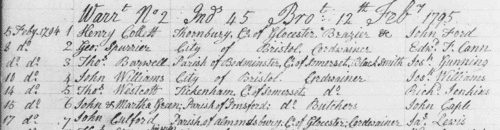 Warrt No 2 Ind 45 Brot 12th Feby 1795
5 Feby 1794 1 Henry Collett Thornbury, Co. of Glocester Brazier &c John Ford
8 do 2 Geo: Spurrier City of Bristol Cordwainer Edwd T. Cann
do do 3 Thos. Bagwell Parish of Bedminster, C. of Somerset, Black Smith Jos: Gunning
10 do 4 John Williams City of Bristol Cordwainer Jos: Williams
14 do 5 Thos. Westcott Tickenham, C. of Somerset do Richd Jenkins
16 do 6 John & Martha Green, Parish of do Butchers John Caple
17 do 7 John Parish of Almondsbury, C. of Glocester, Cordwainer Jas: Lewis